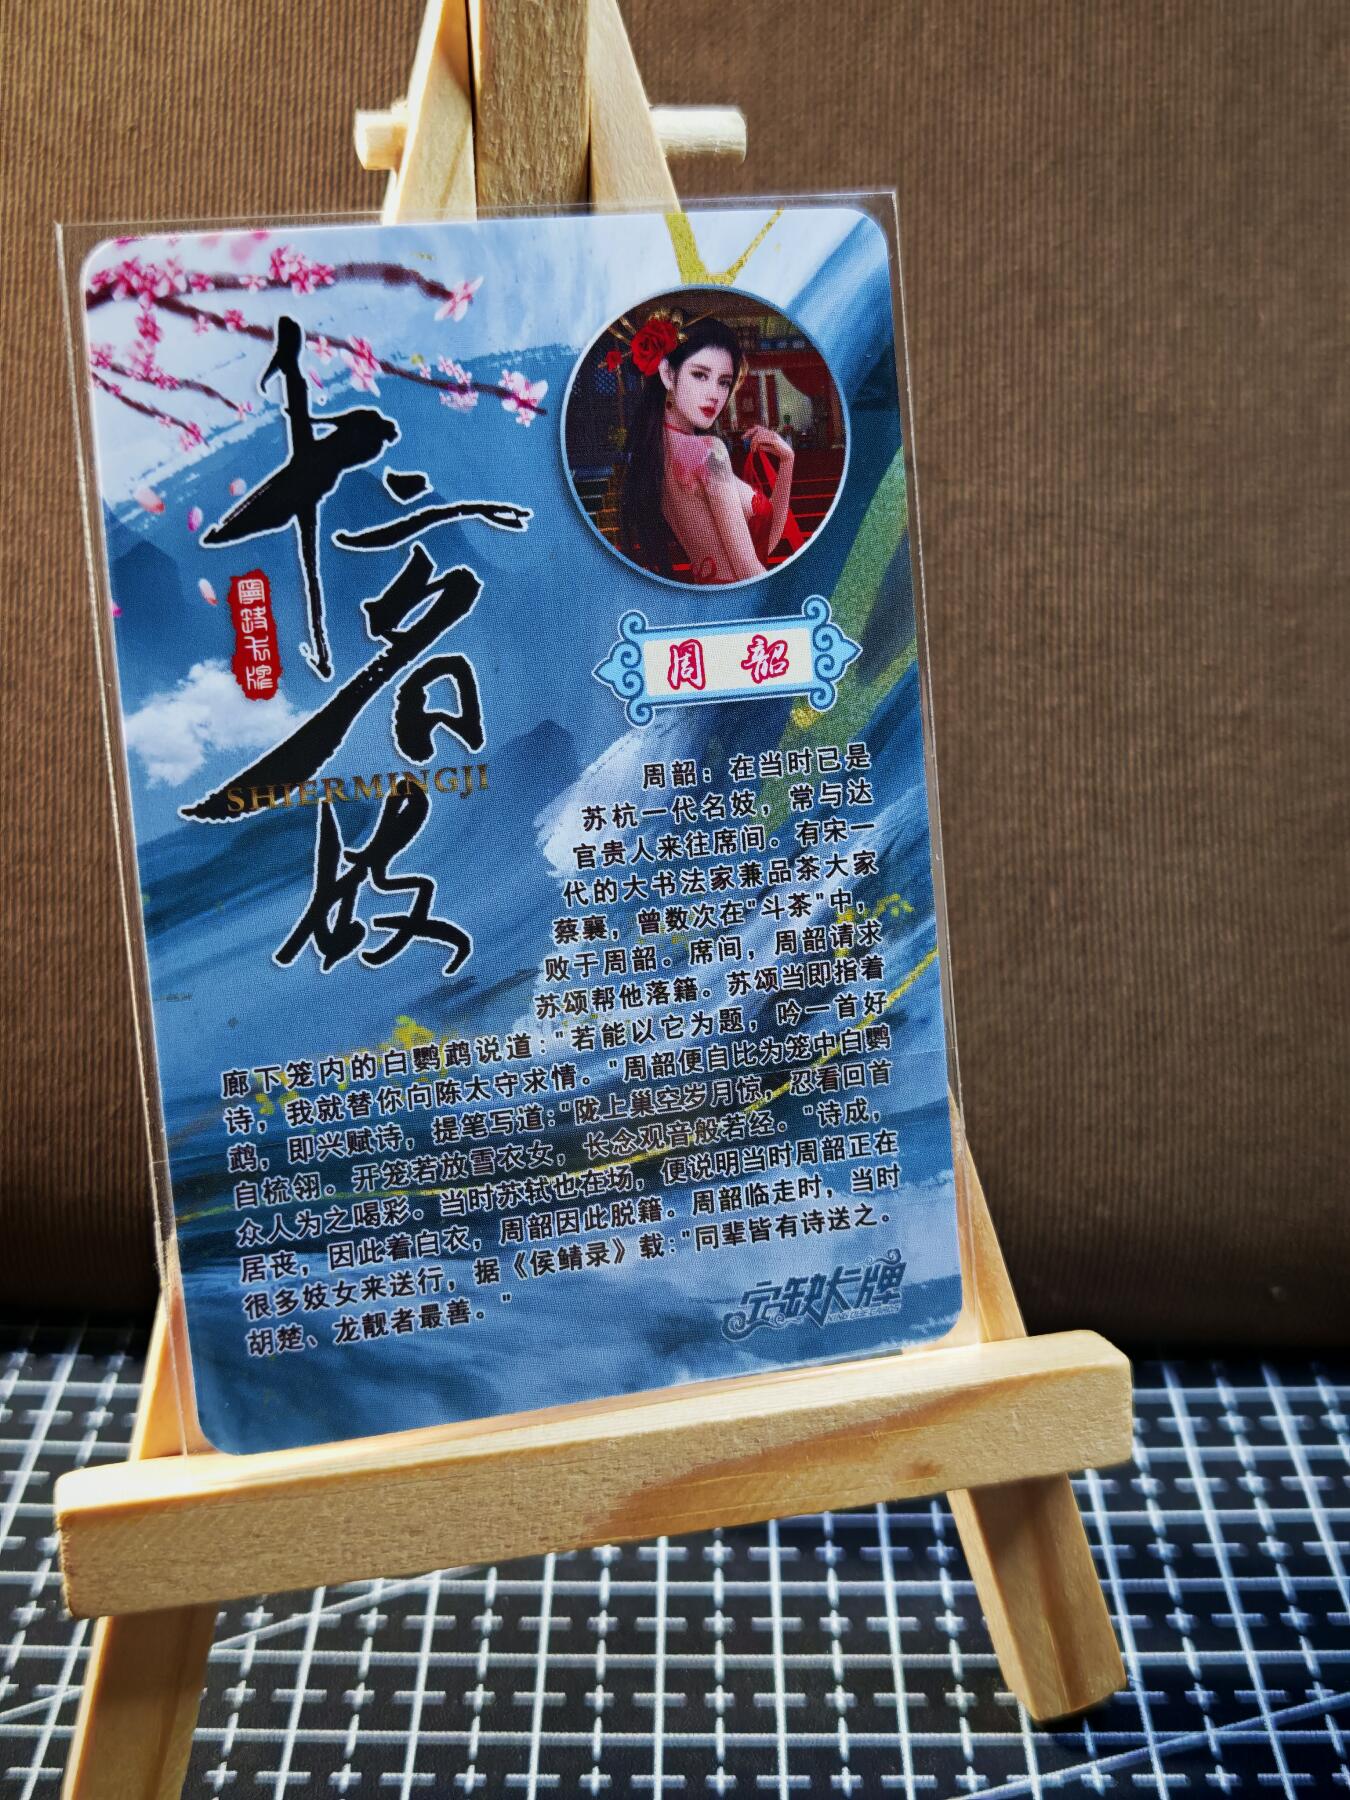 十二名妓
SHIERMINGJI
寧缺卡牌
周 韶
周韶：在当时已是
苏杭一代名妓，常与达
官贵人来往席间。有宋一
代的大书法家兼品茶大家
蔡襄，曾数次在"斗茶"中，
败于周韶。席间，周韶请求
苏颂帮他落籍。苏颂当即指着
廊下笼内的白鹦鹉说道："若能以它为题，吟一首好
诗，我就替你向陈太守求情。"周韶便自比为笼中白鹦
鹉，即兴赋诗，提笔写道："陇上巢空岁月惊，忍看回首
自梳翎。开笼若放雪衣女，长念观音般若经。"诗成，
众人为之喝彩。当时苏轼也在场，便说明当时周韶正在
居丧，因此着白衣，周韶因此脱籍。周韶临走时，当时
很多妓女来送行，据《侯鲭录》载："同辈皆有诗送之。
胡楚、龙靓者最善。"
宁缺卡牌